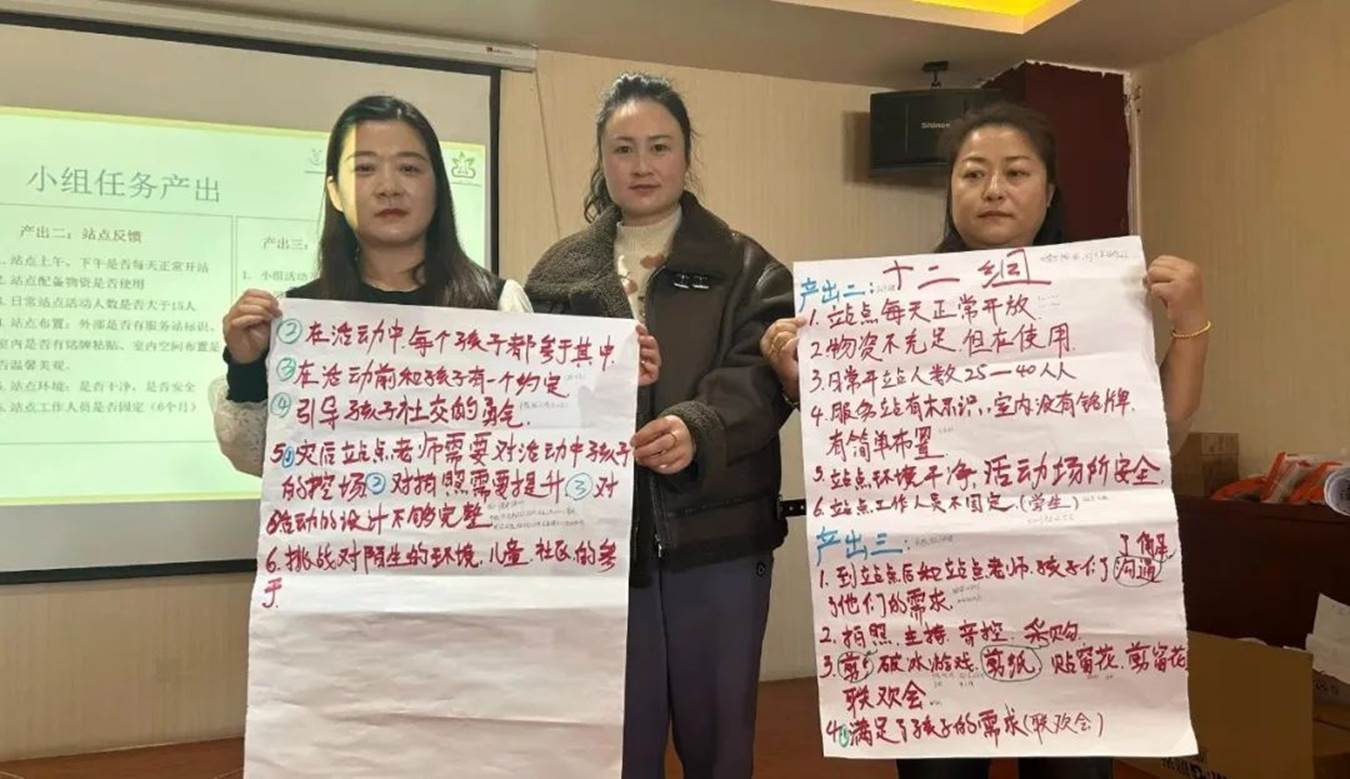 小组任务产出
产出二：站点反馈
1. 站点上午、下午是否每天正常开站
2. 站点配备物资是否使用
3. 日常站点活动人数是否大于15人
4. 站点布置：外部是否有服务站标识，
室内是否有铭牌粘贴、室内空间布置是
否温馨美观。
5. 站点环境：是否干净，是否安全
6. 站点工作人员是否固定（6个月）
产出三：
1. 小组活动
②在活动中,每个孩子都参于其中.
③在活动前和孩子有一个约定.
④引导孩子社交的勇气.
5①灾后站点老师需要对活动中孩子
的控场②对拍照需要提升.③对
活动的设计不够完整
6.挑战对陌生的环境.儿童.社区的参
于.
十二组
产出二:
1.站点每天正常开放.
2.物资不充足.但在使用.
3.日常开站人数25—40人人
4.服务站有标识,室内没有铭牌.
有简单布置.
5.站点环境干净,活动场所安全.
6.站点工作人员不固定.(学生)
产出三:
1.到站点后和站点老师.孩子们了沟通
了他们的需求.
2.拍照.主持.音控.采购.
3.剪 破冰游戏.剪纸.贴窗花.剪窗花
联欢会.
4.①满足了孩子的需求(联欢会)
Shinco